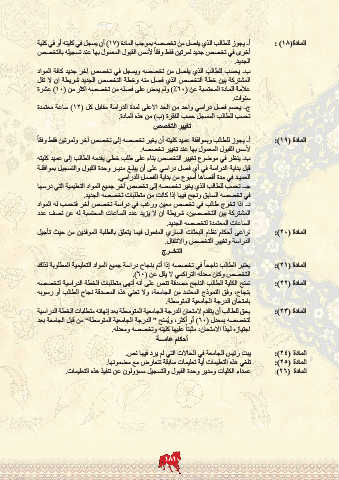 المادة (١٨) : أ. يجوز للطالب الذي يفصل من تخصصه بموجب المادة (١٧) أن يسجل في كليته أو في كلية
أخرى في تخصص جديد لمرتين فقط وفقاً لأسس القبول المعمول بها عند تسجيله بالتخصص
الجديد.
ب. يحسب للطالب الذي يفصل من تخصصه ويسجل في تخصص آخر جديد كافة المواد
المشتركة بين خطة التخصص الذي فصل منه وخطة التخصص الجديد شريطة أن لا تقل
علامة المادة المحتسبة عن (٦٠٪) ولم يمض على فصله من تخصصه أكثر من (١٠) عشرة
سنوات.
ج. يخصم فصل دراسي واحد من الحد الأعلى لمدة الدراسة مقابل كل (١٢) ساعة معتمدة
تحسب للطالب المسجل حسب الفقرة (ب) من هذه المادة.
تغيير التخصص
المادة (١٩): أ. يجوز للطالب وبموافقة عميد كليته أن يغير تخصصه إلى تخصص آخر ولمرتين فقط وفقاً
لأسس القبول المعمول بها عند تغيير تخصصه.
ب. ينظر في موضوع تغيير التخصص بناء على طلب خطي يقدمه الطالب إلى عميد كليته
قبل بداية الدراسة في أي فصل دراسي على أن يبلغ مدير وحدة القبول والتسجيل بموافقة
العميد في مدة أقصاها أسبوع من بداية الفصل الدراسي.
جـ. تحسب للطالب الذي يغير تخصصه إلى تخصص آخر جميع المواد التعليمية التي درسها
في تخصصه السابق ونجح فيها إذا كانت من متطلبات تخصصه الجديد.
د. إذا تخرج طالب في تخصص معين ورغب في دراسة تخصص آخر فتحسب له المواد
المشتركة بين التخصصين، شريطة أن لا يزيد عدد الساعات المحتسبة له عن نصف عدد
الساعات المعتمدة لتخصصه الجديد.
المادة (٢٠): تراعى أحكام نظام البعثات الساري المفعول فيما يتعلق بالطلبة الموفدين من حيث تأجيل
الدراسة وتغيير التخصص والانتقال.
التخـــرج
المادة (٢١): يعتبر الطالب ناجحاً في تخصصه إذا أتم بنجاح دراسة جميع المواد التعليمية المطلوبة لذلك
التخصص وكان معدله التراكمي لا يقل عن (٦٠٪).
المادة (٢٢): تمنح الكلية الطالب الناجح مصدقة تنص على أنه أنهى متطلبات الخطة الدراسية لتخصصه
بنجاح، وفق النموذج المعتمد من الجامعة، ولا تعني هذه المصدقة نجاح الطالب أو رسوبه
بامتحان الدرجة الجامعية المتوسطة.
المادة (٢٣): يحق للطالب أن يتقدم لامتحان الدرجة الجامعية المتوسطة بعد إنهائه متطلبات الخطة الدراسية
لتخصصه بمعدل (٦٠٪) أو أكثر، ويمنح " الدرجة الجامعية المتوسطة" من قبل الجامعة بعد
اجتيازه لهذا الامتحان، مثبتاً عليها كليته وتخصصه ومعدله.
أحكام عامـــة
المادة (٢٤): يبت رئيس الجامعة في الحالات التي لم يرد فيها نص.
المادة (٢٥): تلغي هذه التعليمات أية تعليمات سابقة تتعارض مع مضمونها.
المادة (٢٦): عمداء الكليات ومدير وحدة القبول والتسجيل مسؤولون عن تنفيذ هذه التعليمات.
١٨١